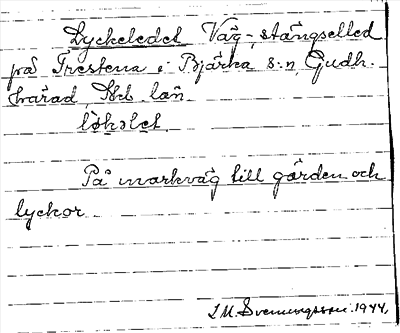 Lyckeledet Väg-, stängselled
på Trestena i Bjärka s:n, Gudh.
härad, Sbl. län
lỏkəlet.
På markväg till gården och
lyckor
I.M. Svenningsson. 1944.